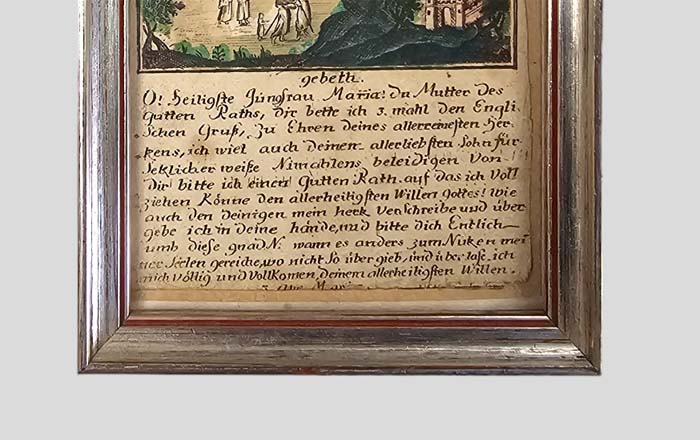 gebett.
O! Heiligste Jungfrau Maria! du Mutter des
Gutten Raths, dir bette ich 3. mahl den Engli-
schen Gruß, Zu Ehren deines allerreinesten Her-
zens, ich wiel auch deinem allerliebsten Sohn für-
setzlicher weiße Nimahlens beleidigen Von
Dir bitte ich einen Gutten Rath. auf das ich Voll
ziehen Könne den allerheiligsten Willen gottes! wie
auch den Deinigen mein herz Verschreibe und über
gebe ich in deine hände, und bitte dich Entlich
umb diese gnad N. wann es anders zum Nuzen mei
ner Seelen gereiche, wo nicht So übergieb, und überlase ich
mich völlig und Vollkomen, deinem allerheiligsten Willen.
3. Ave Mar